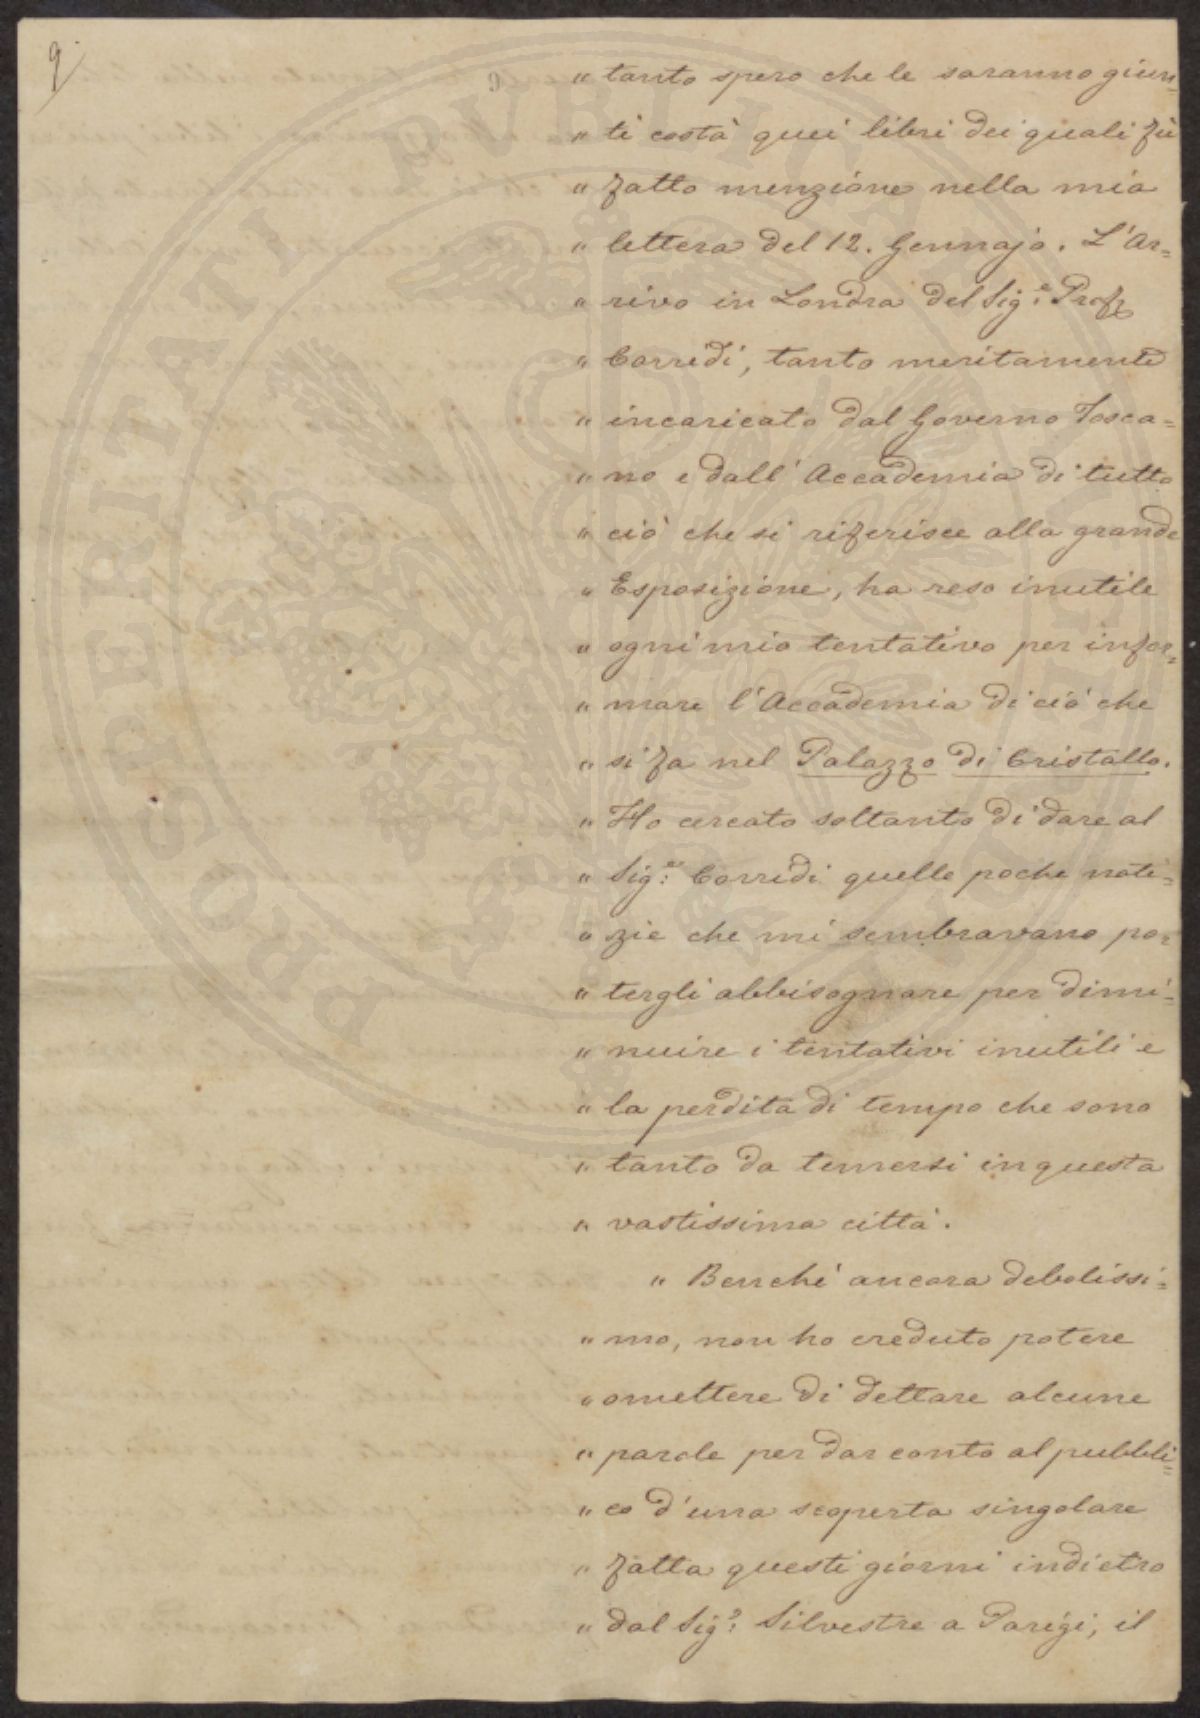 9.
9
" tanto spero che le saranno giun-
" ti costà quei libri dei quali fù
" fatto menzione nella mia
" lettera del 12. Gennajo. L'Ar=
" rivo in Londra del Sig.e Prof.
" Corridi, tanto meritamente
" incaricato dal Governo Tosca=
" no e dall'Accademia di tutto
" ciò che si riferisce alla grande
" Esposizione, ha reso inutile
" ogni mio tentativo per infor=
" mare l'Accademia di ciò che
" si fa nel Palazzo di Cristallo.
" Ho cercato soltanto di dare al
" Sig.e Corridi quelle poche noti=
" zie che mi sembravano po=
" tergli abbisognare per dimi=
" nuire i tentativi inutili e
" la perdita di tempo che sono
" tanto da temersi in questa
" vastissima città.
" Benchè ancora debolissi=
" mo, non ho creduto potere
" omettere di dettare alcune
" parole per dar conto al pubbli=
" co d'una scoperta singolare
" fatta questi giorni indietro
" dal Sig.e Silvestre a Parigi, il
PROSPERITATI PUBLICAE AUGENDAE